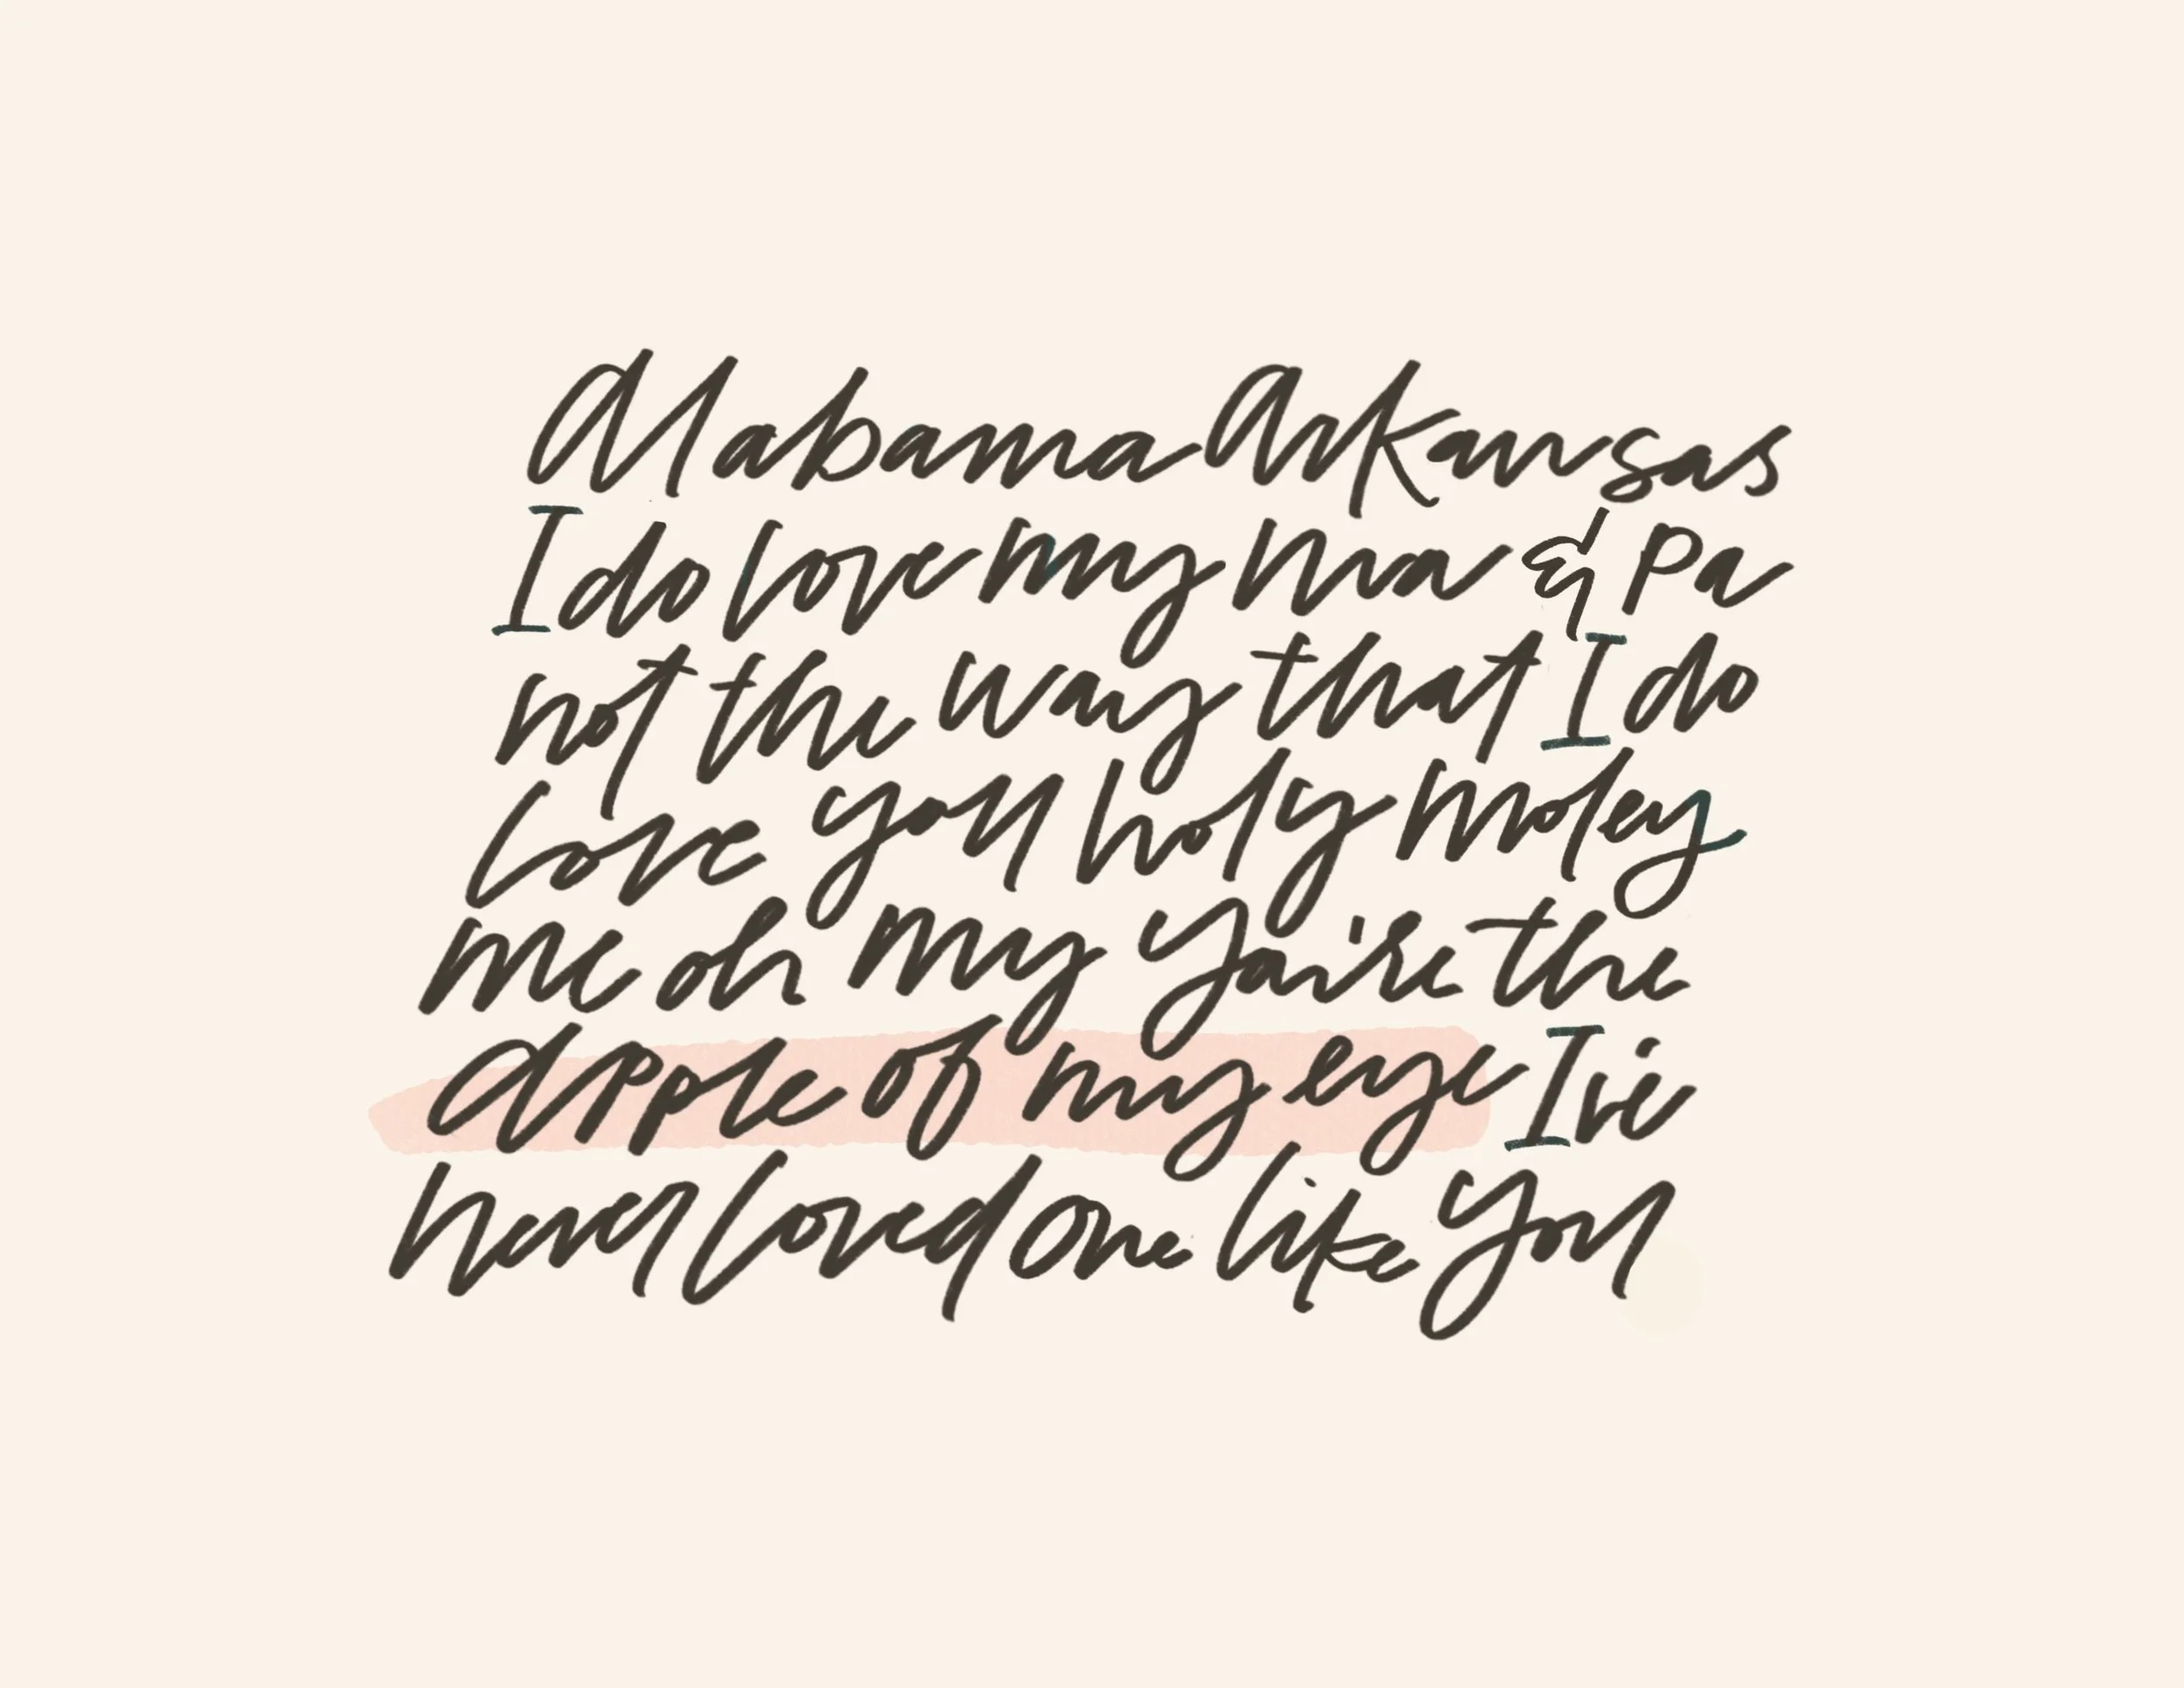 Alabama Arkansas
I do love my ma & pa
not the way that I do
love you holy moley
me oh my you're the
apple of my eye I've
never loved one like you